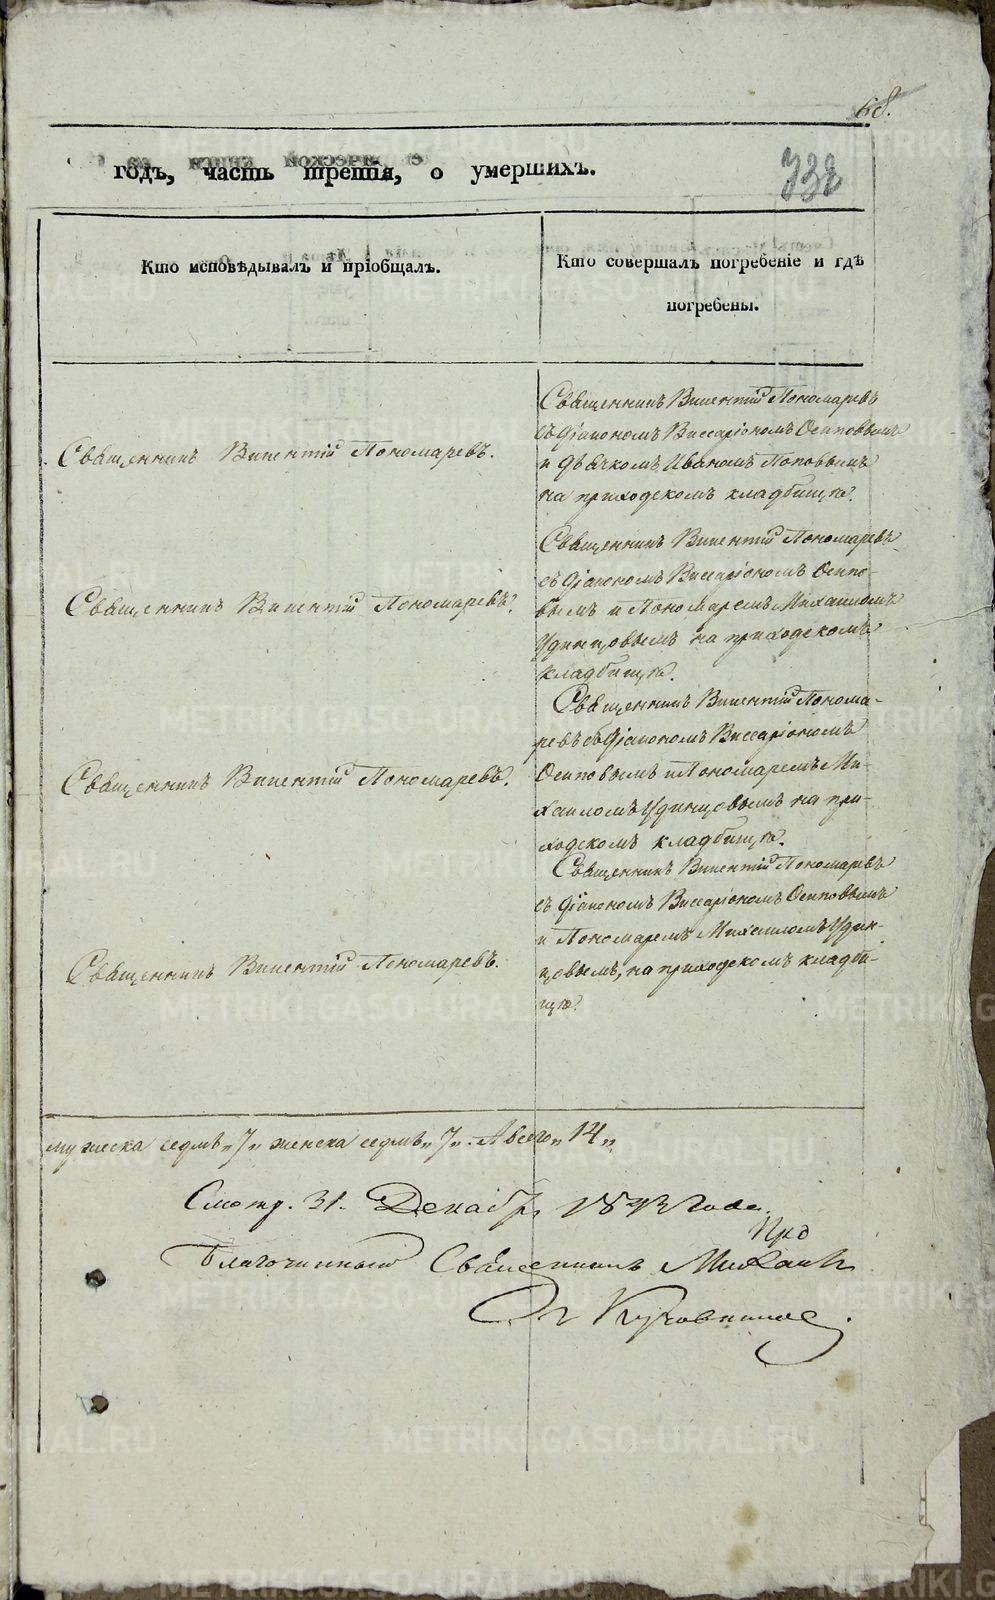 68.
338
годъ, часть третія, о умершихъ.
Кто исповѣдывалъ и пріобщалъ.
Кто совершалъ погребеніе и гдѣ
погребены.
Священникъ Викентій Пономаревъ.
Священникъ Викентій Пономаревъ
съ Діакономъ Виссаріономъ Осиповымъ
и дьячкомъ Иваномъ Поповымъ
на приходскомъ кладбищѣ.
Священникъ Викентій Пономаревъ.
Священникъ Викентій Пономаревъ
съ Діакономъ Виссаріономъ Осипо-
вымъ и Пономаремъ Михаиломъ
Удинцовымъ на приходскомъ
кладбищѣ.
Священникъ Викентій Пономаревъ.
Священникъ Викентій Понома-
ревъ съ Діакономъ Виссаріономъ
Осиповымъ и Пономаремъ Ми-
хаиломъ Удинцовымъ на при-
ходскомъ кладбищѣ.
Священникъ Викентій Пономаревъ.
Священникъ Викентій Пономаревъ
съ Діакономъ Виссаріономъ Осиповымъ
и Пономаремъ Михаиломъ Удин-
цовымъ, на приходскомъ кладби-
щѣ.
мужеска седмь „7„ женска седмь „7„. А всего „14„
Смотр. 31. Декабря 1843 года.
Благочинный Священникъ Михаилъ
METRIKI.GASO-URAL.RU